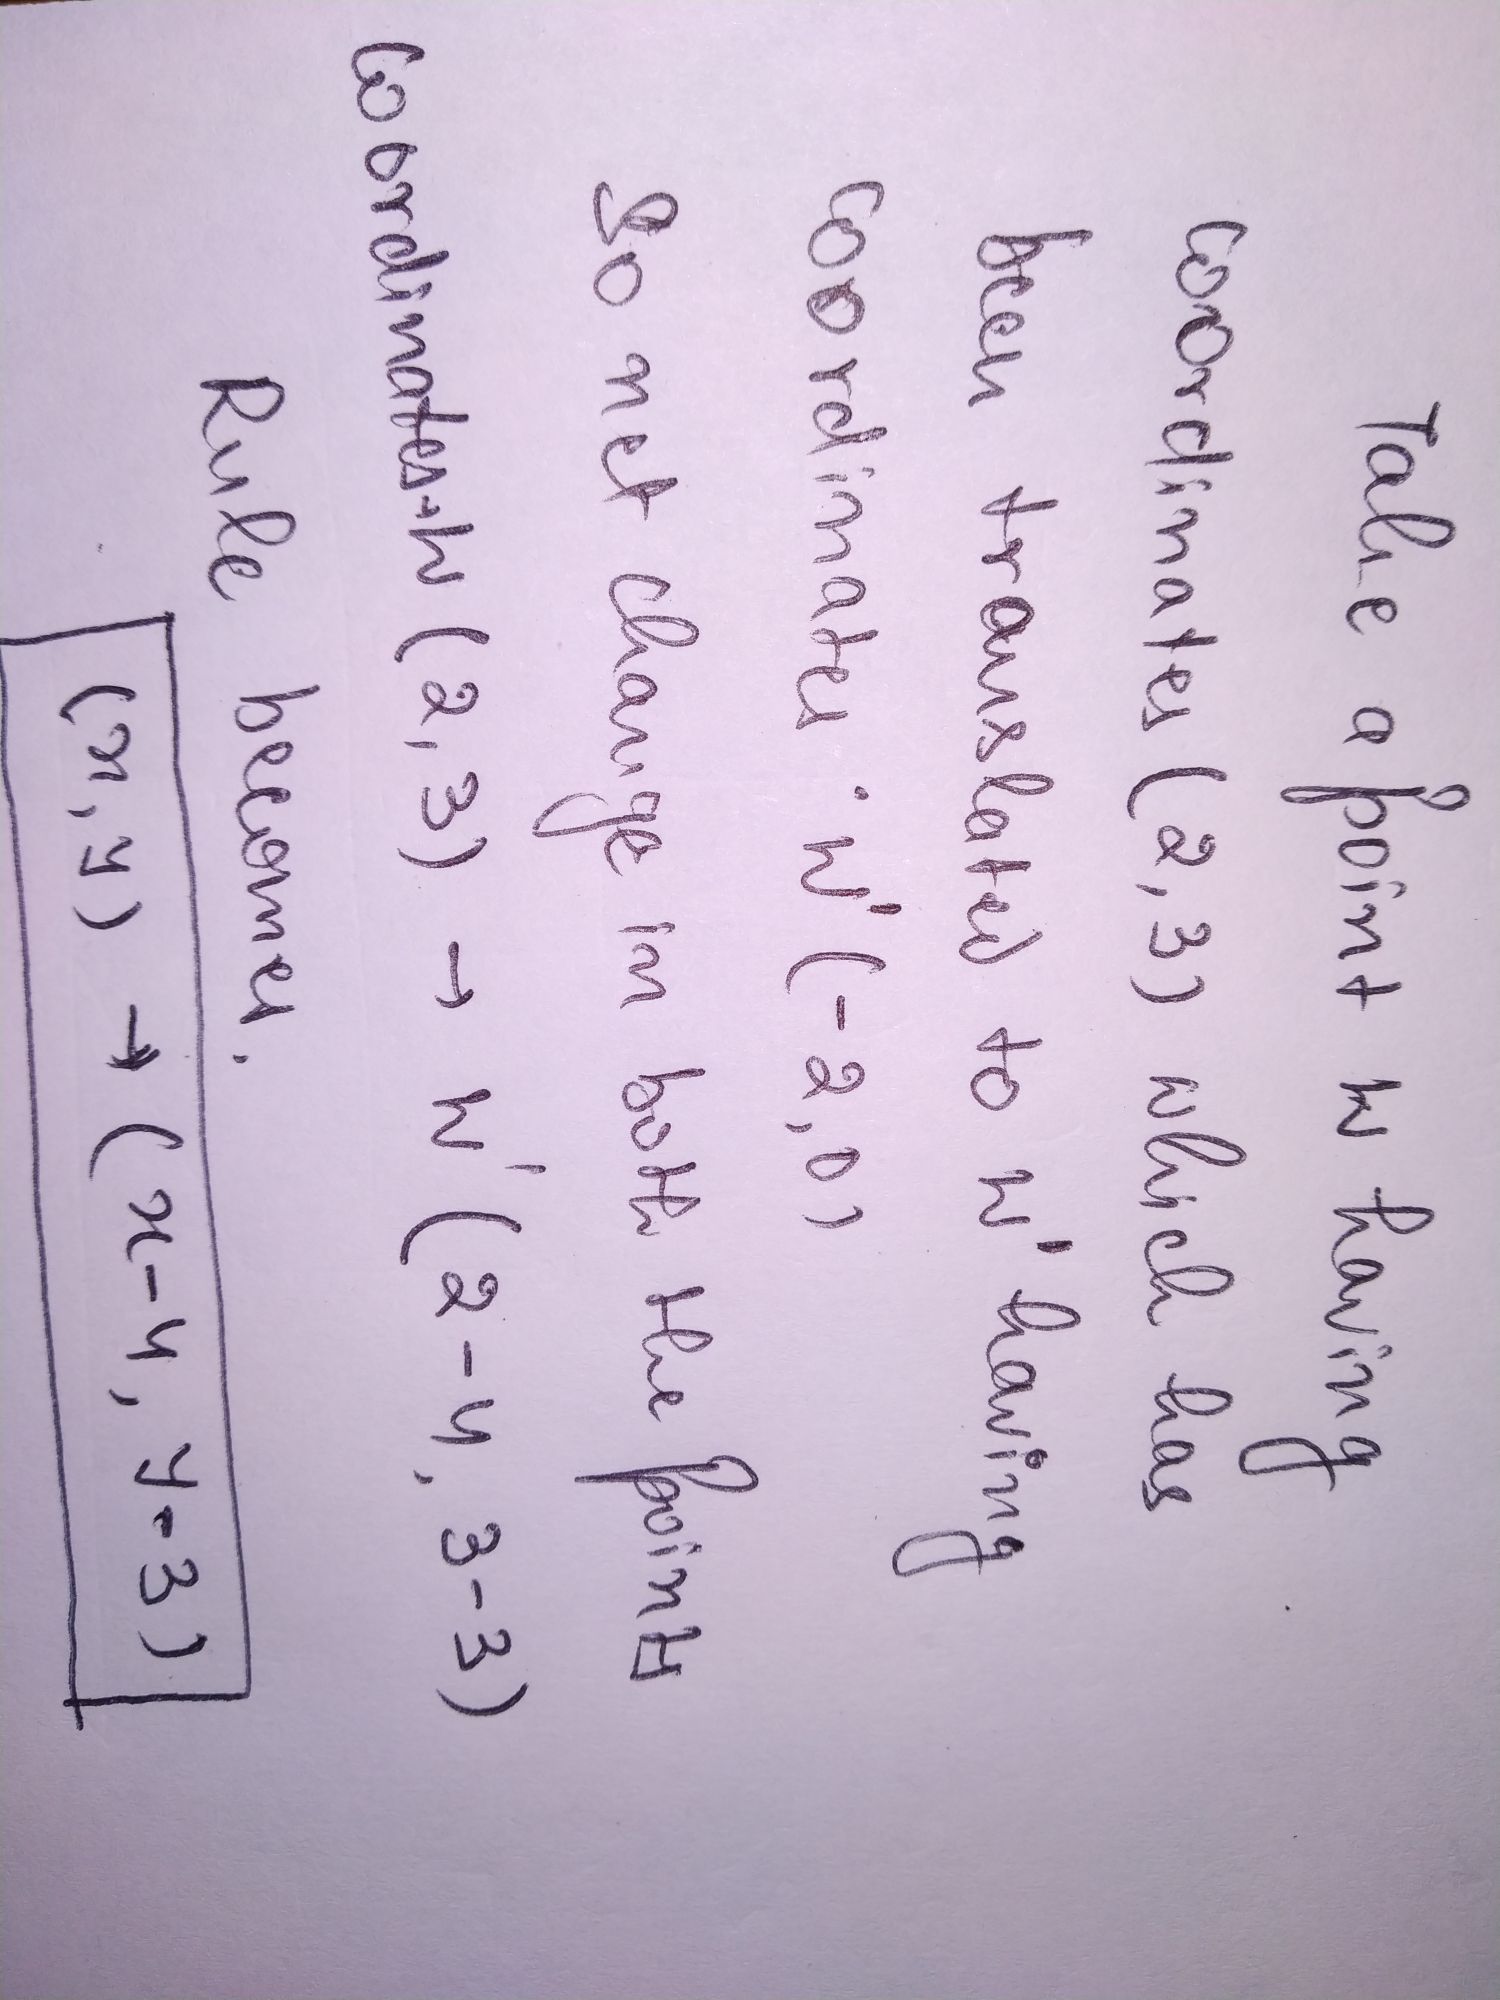 Take a point W having
coordinates (2,3) which has
been translated to W' having
coordinates . W' (-2,0)
So net change in both the points
coordinates → W (2,3) → W' (2-4, 3-3)
Rule becomes.
(x,y) → (x-4, y-3)